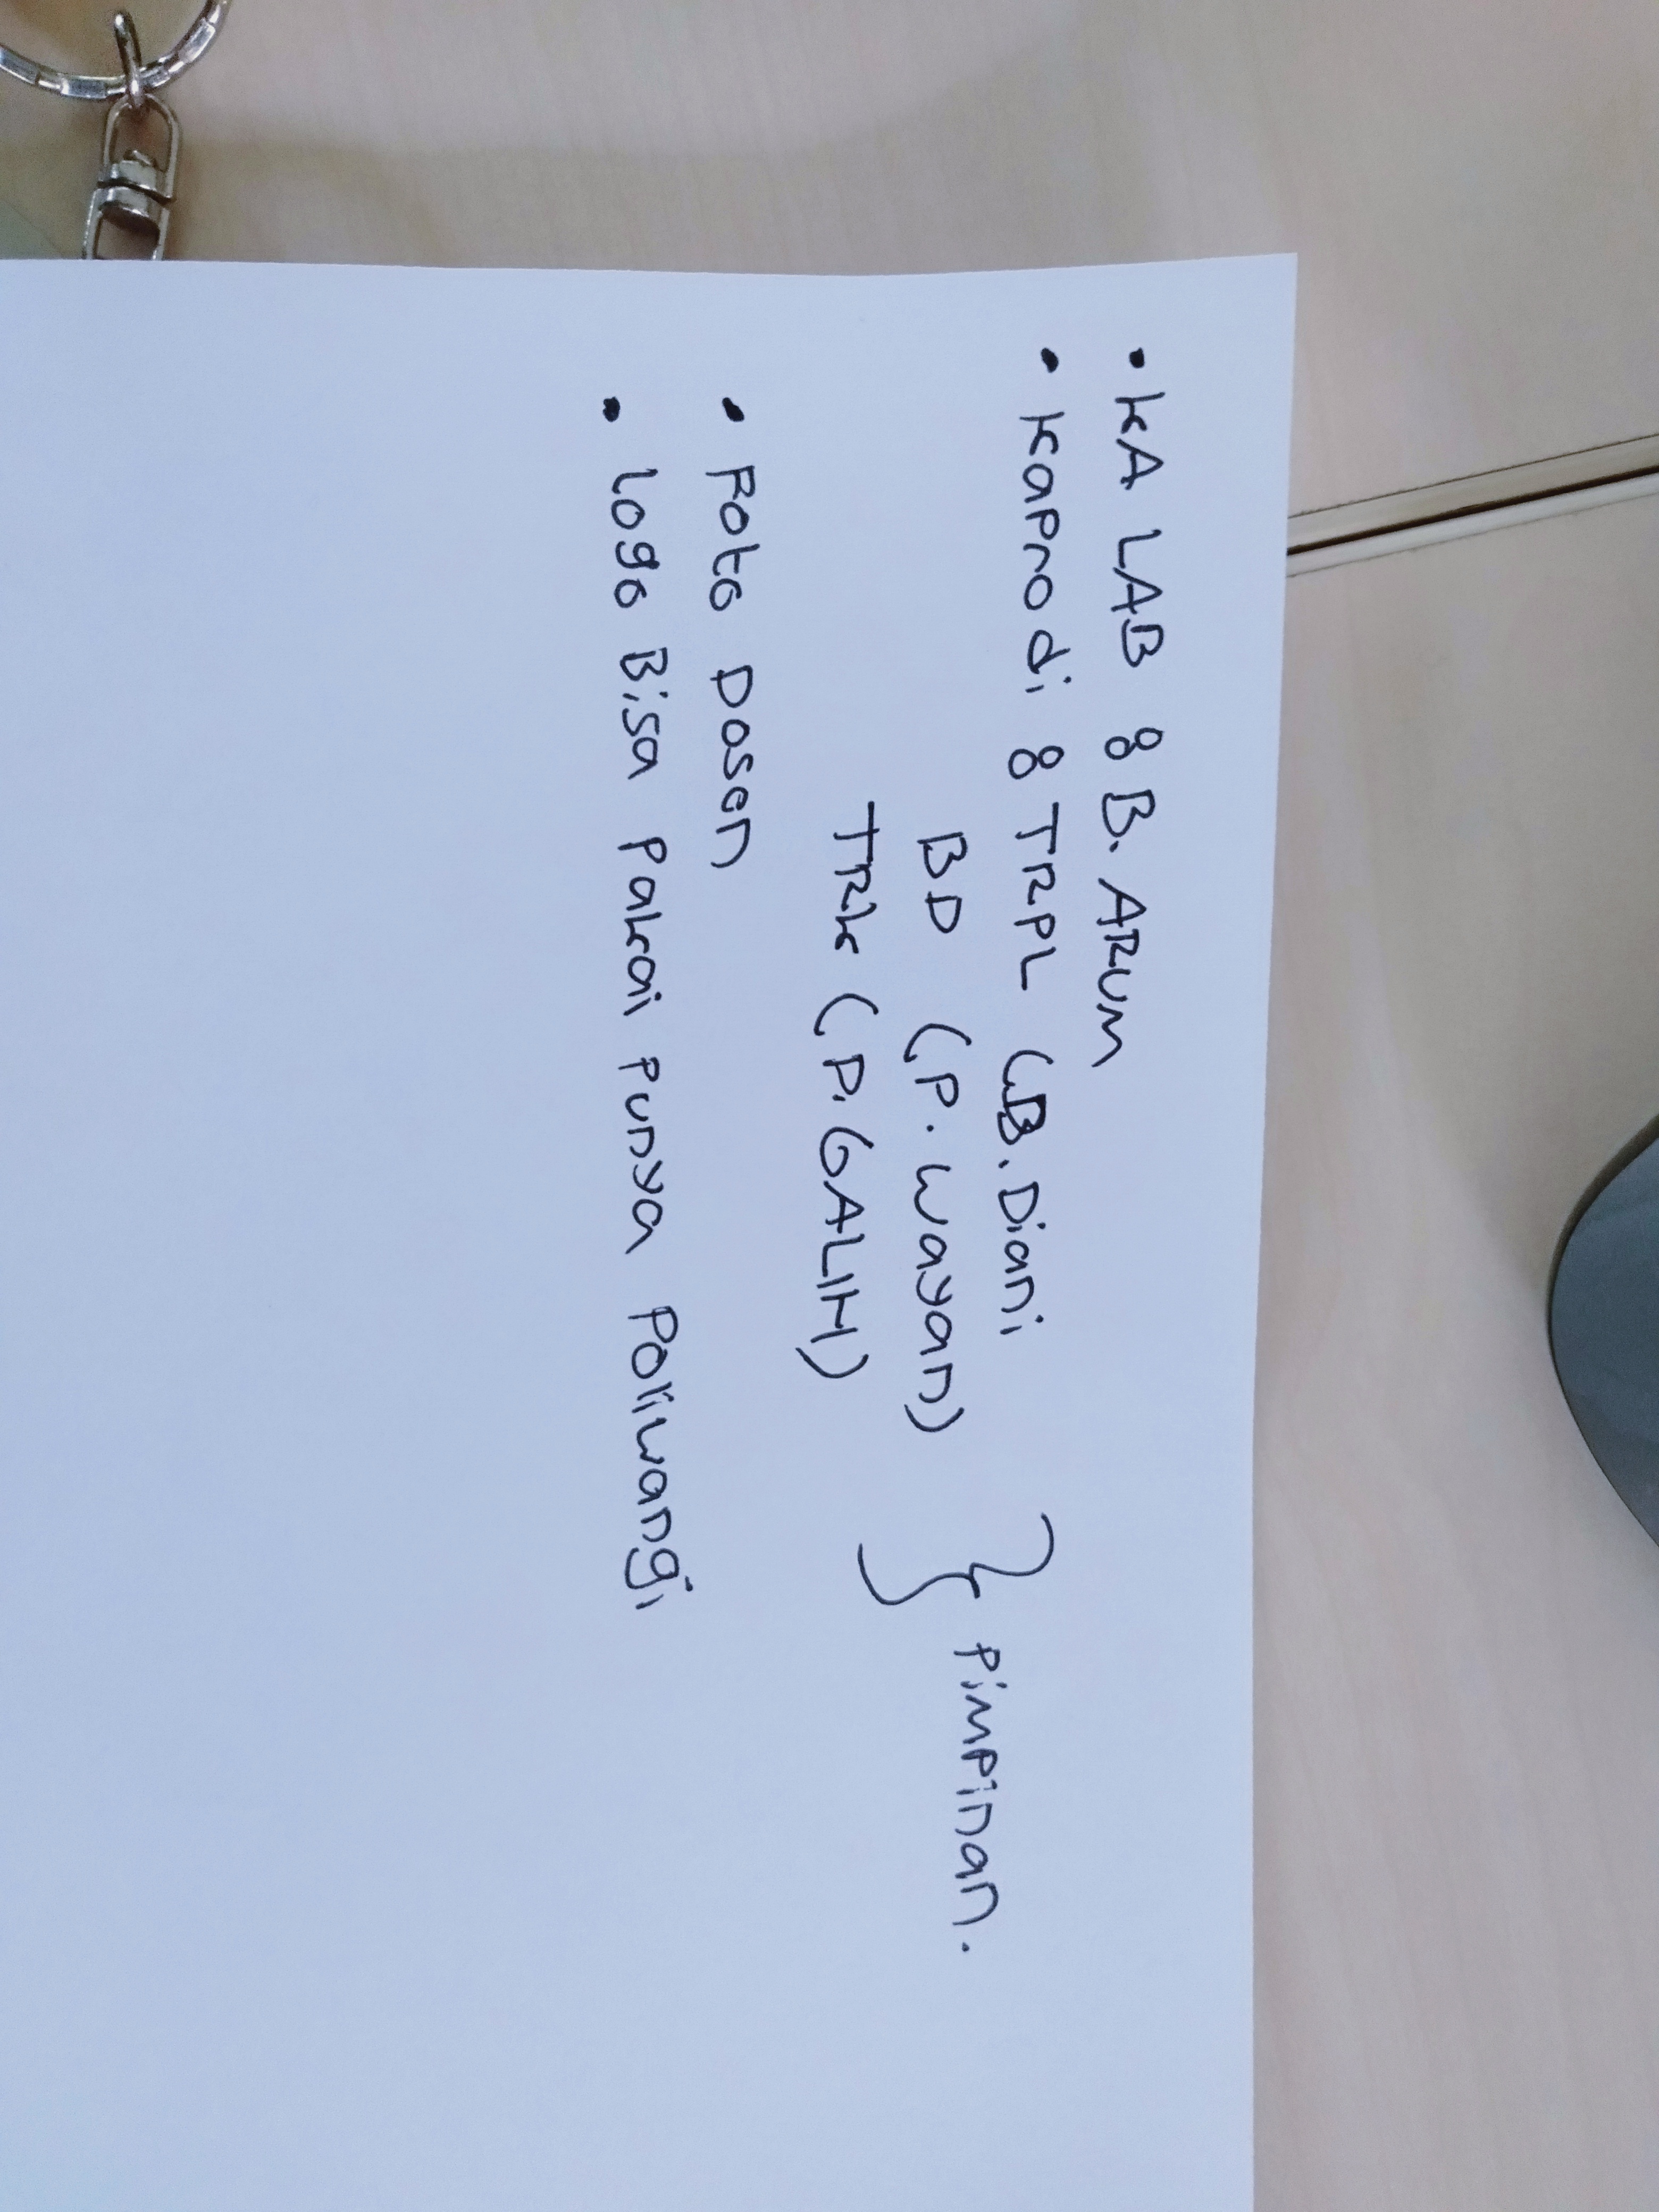 • KA LAB : B. ARUM
• Kaprodi : TRPL (B. Diani
BD (P. Wayan)
TRK (P. GALIH)
} Pimpinan.
• Foto Dosen
• Logo Bisa Pakai Punya Poliwangi